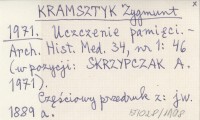 KRAMSZTYK Zygmunt
1971. Uczczenie pamięci. –
Arch. Hist. Med. 34, nr 1: 46
(w pozycji: SKRZYPCZAK A.
1971).
Częściowy przedruk z: jw.
1889 a.